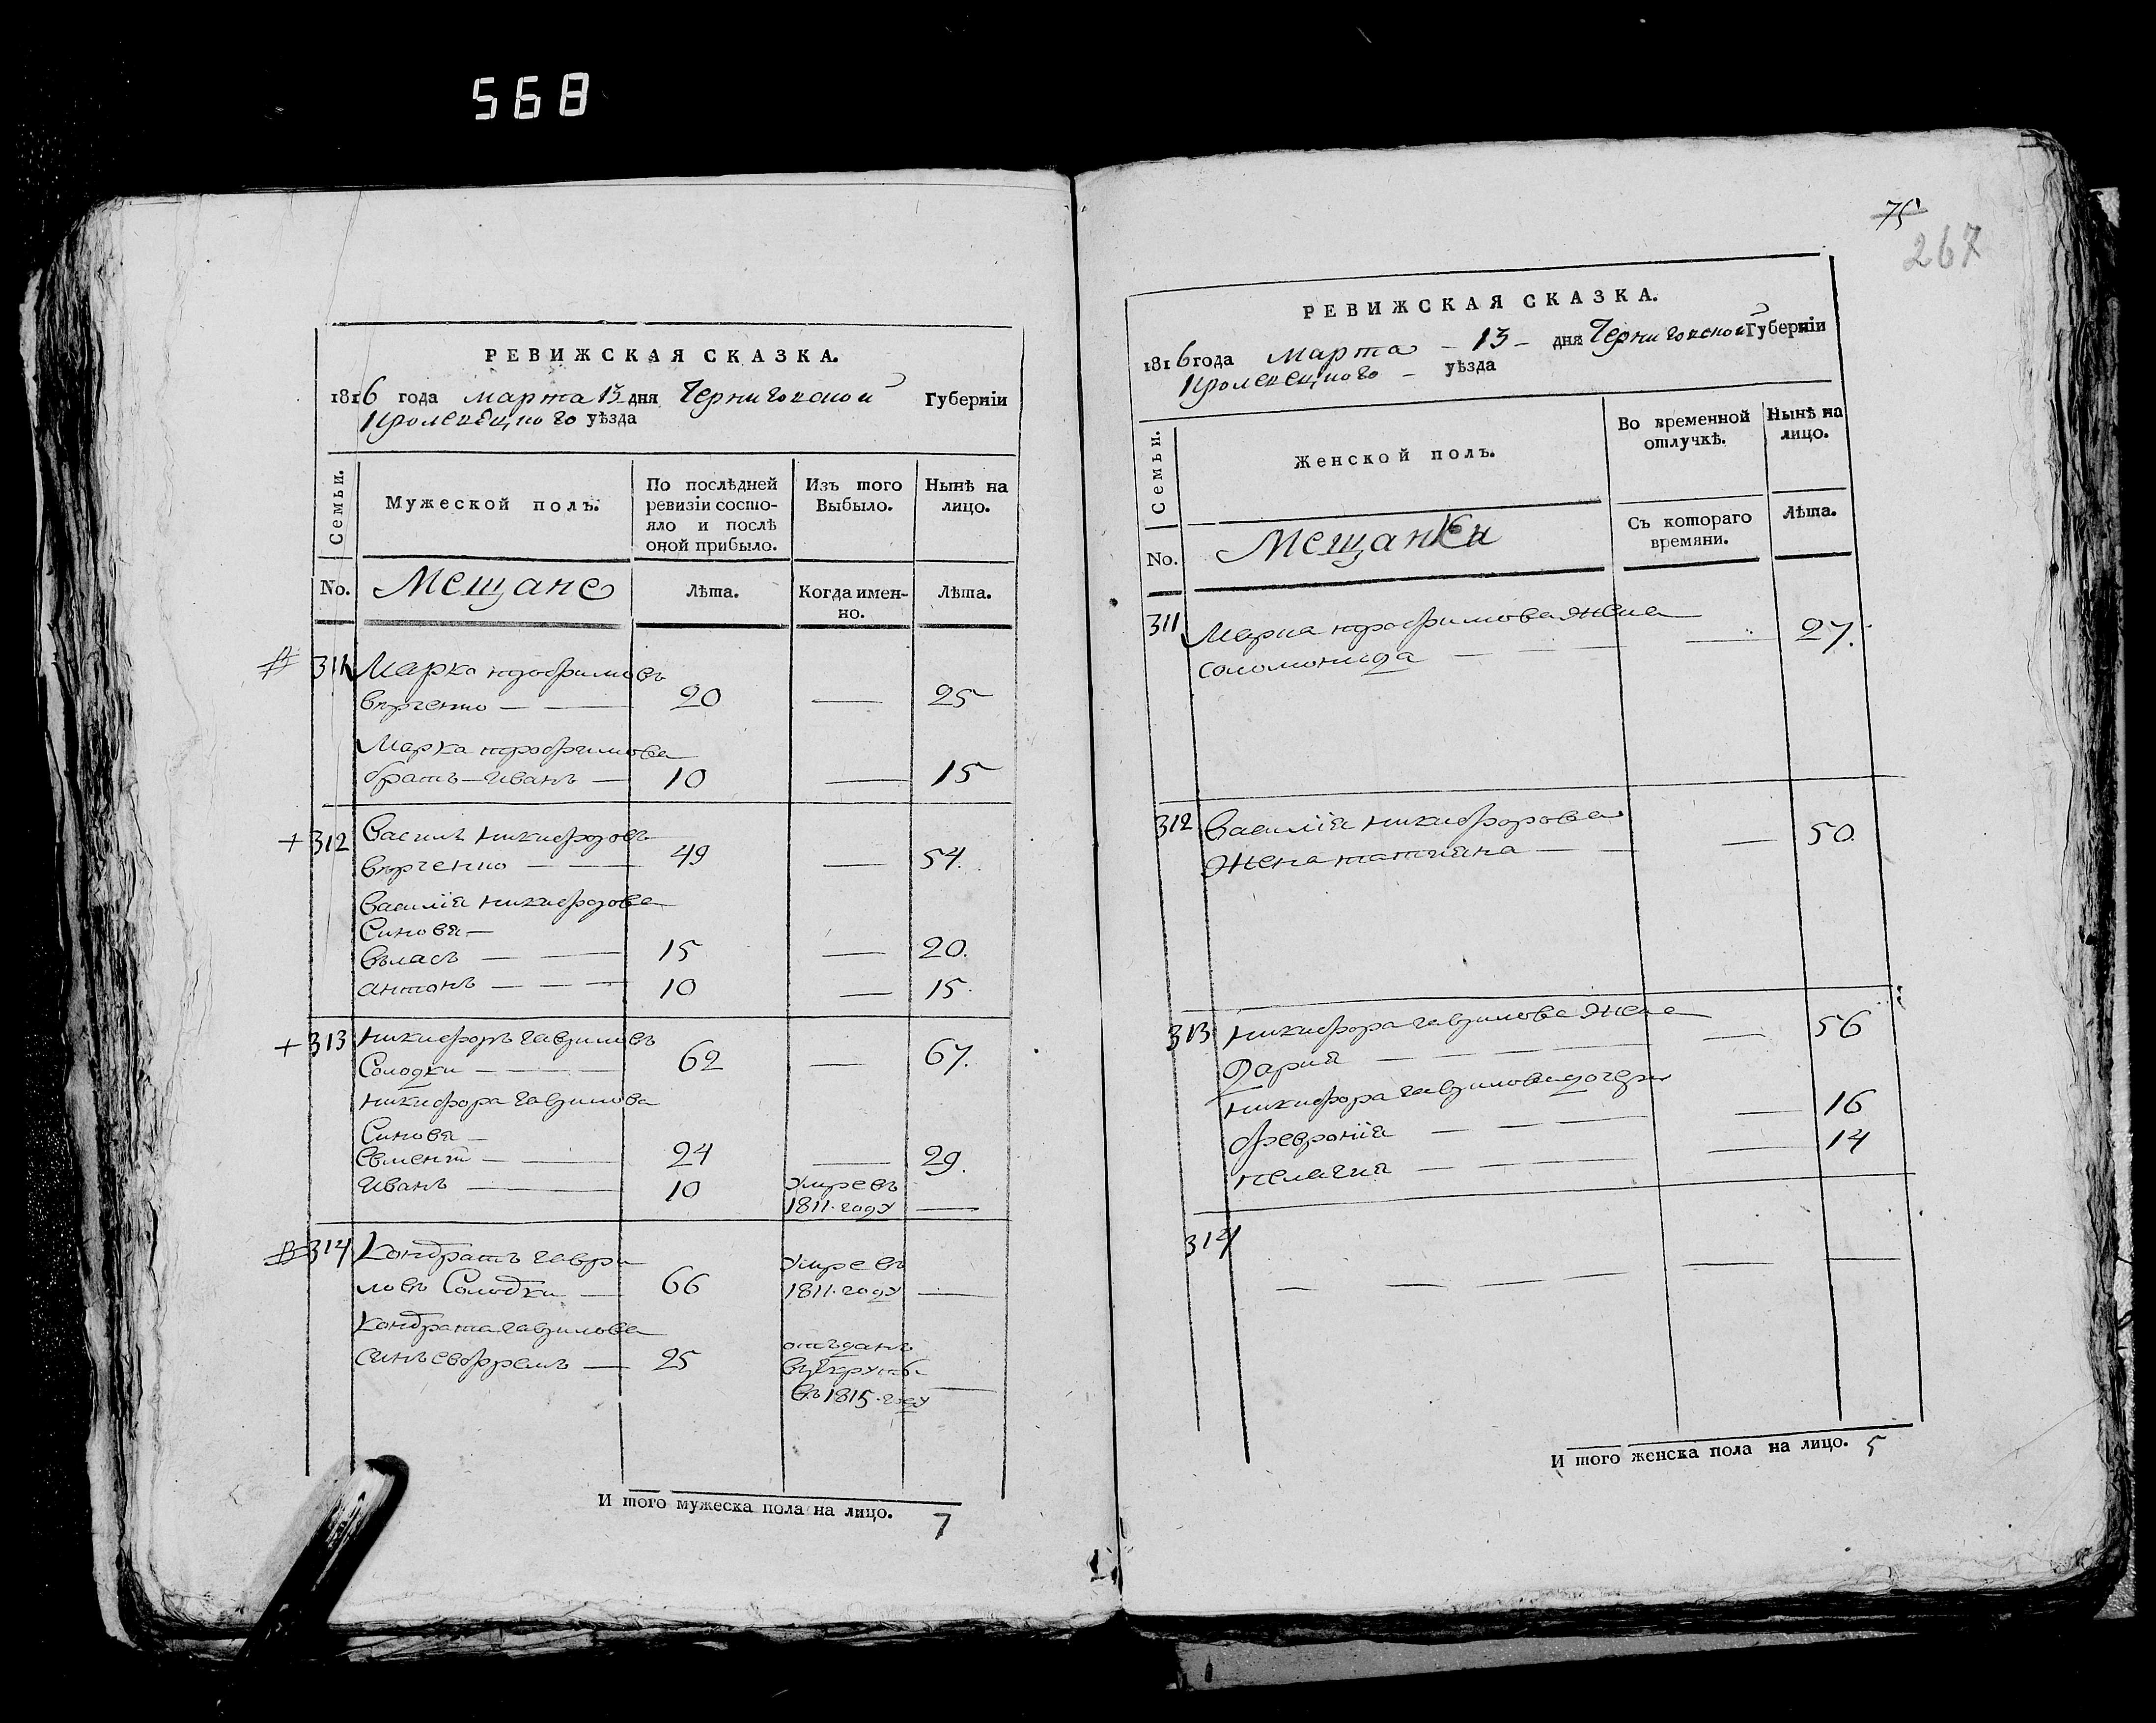 568
РЕВИЖСКАЯ СКАЗКА.
1816 года марта 13 дня Черниговской Губернїи
Кролевецкого уѣзда
Семьи.
Мужеской полъ.
По послѣдней ревизїи состо-
яло и послѣ
оной прибыло.
Изъ того
Выбыло.
Нынѣ на
лицо.
No.
Мещане
Лѣта.
Когда имен-
но.
Лѣта.
311 Марко
20 — 25
Марка
братъ – иванъ — 10 — 15
+ 312 Василь никифоровъ
— — 49 — 54.
василїя никифорова
Синовя —
власъ — — 15 — 20.
антонъ — — — 10 — 15.
+ 313 никифоръ гавриловъ
Солодки — — — 62 — 67.
никифора гаврилова
Синовя —
— — 24 — 29.
иванъ — 10 умре въ
1811. году —
314 Кондратъ гаври
ловъ Солодки — 66 умре въ
1811. году —
Кондрата гаврилова
синъ евфремъ — 25 отъданъ
въ
въ 1815. году —
И того мужеска пола на лицо. 7
75
267
РЕВИЖСКАЯ СКАЗКА.
1816 года Марта – 13 – дня Черниговской Губернїи
Кролевецкого – уѣзда
Семьи.
Женской полъ.
Во временной
отлучкѣ.
Нынѣ на
лицо.
No.
Мещанки
Съ котораго
времяни.
Лѣта.
311 Марка жена
соломонида — — — — 27.
312 василїя никифорова
жена татияна — — — 50.
313 никифора гаврилова жена — 56
Дария — — — —
никифора гаврилова дочери
февронїя — — — — 16
пелагия — — — — 14
314
— — — — — —
И того женска пола на лицо. 5